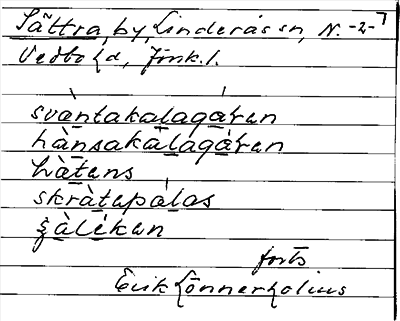 Sättra, by, Linderås sn, N. -2-7
Vedbo hd, Jönk. l.
svàntakalagáʀan
hànsakàlagáʀan
hàtans
skràtapálas
gàlékan
forts
Erik Lönnerholius